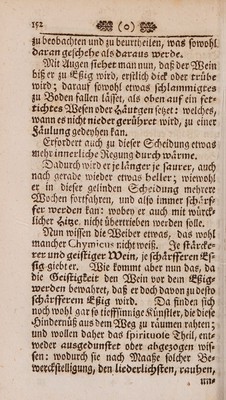 152 (o)
zu beobachten und zu beurtheilen, was sowohl
daran geschehe als daraus werde.
Mit Augen siehet man nun, daß der Wein
biß er zu Eßig wird, erstlich dick oder trübe
wird; darauf sowohl etwas schlammigtes
zu Boden fallen lässet, als oben auf ein fet-
tichtes Wesen oder Häutgen setzet: welches,
wann es nicht nieder gerühret wird, zu einer
Fäulung gedeyhen kan.
Erfordert auch zu dieser Scheidung etwas
mehr innerliche Regung durch wärme.
Dadurch wird er je länger je saurer, auch
nach gerade wieder etwas heller; wiewohl
er in dieser gelinden Scheidung mehrere
Wochen fortfahren, und also immer schärf-
fer werden kan: wobey er auch mit würck-
licher Hitze, nicht übertrieben werden solle.
Nun wissen die Weiber etwas, das wohl
mancher Chymicus nicht weiß. Je stärcke-
rer und geistiger Wein, je schärfferen Es-
sig giebter. Wie kommt aber nun das, da
die Geistigkeit den Wein vor dem Eßig-
werden bewahret, daß er doch davon zu desto
schärfferem Eßig wird. Da finden sich
noch wohl gar so tieffsinnige Künstler, die diese
Hindernüß aus dem Weg zu räumen rahten;
und wollen daher das spirituose Theil, ent-
weder ausgedunstet oder abgezogen wis-
sen: wodurch sie nach Maaße solcher Be-
werckstelligung, den liederlichsten, rauhen,
un-